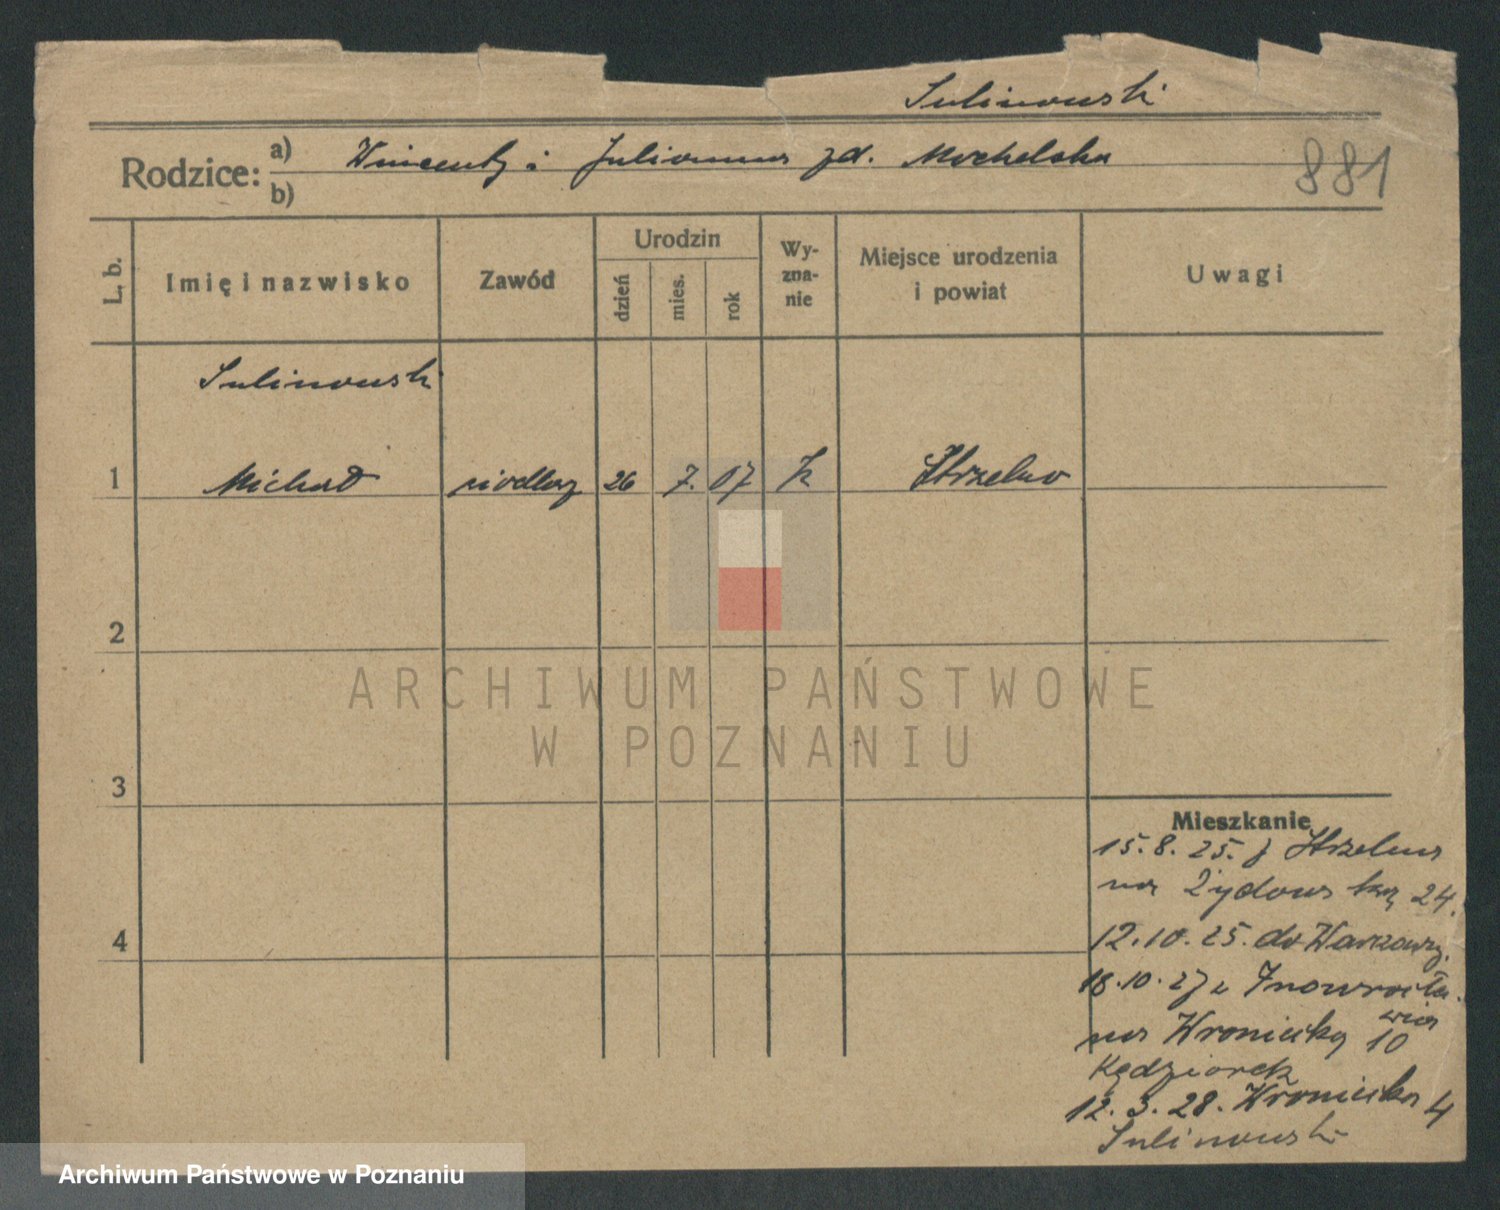 Sulinowski
Rodzice: a) Wincenty i Julianna zd. Mochelska
b)
881
L. b.
Imię i nazwisko
Zawód
Urodzin
dzień
mies.
rok
Wy-
zna-
nie
Miejsce urodzenia
i powiat
Uwagi
Sulinowski
1 Michał siodlarz 26 7. 07 k Strzelno
2
3
4
Mieszkanie
15.8.25. z Strzelna
na Żydowską 24.
12.10.25. do Warszawy.
18.10.27 z Inowrocła-
wia
na Wroniecką 10
Kędziorek
12.3.28. Wroniecka 4
Sulinowski
ARCHIWUM PAŃSTWOWE
W POZNANIU
Archiwum Państwowe w Poznaniu